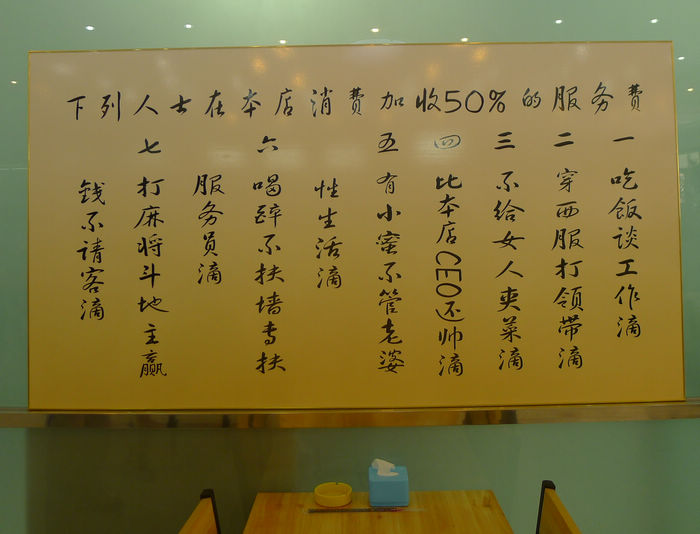 下列人士在本店消费加收50%的服务费
一吃饭谈工作滴
二穿西服打领带滴
三不给女人夹菜滴
四比本店CEO还帅滴
五有小蜜不管老婆
性生活滴
六喝醉不扶墙专扶
服务员滴
七打麻将斗地主赢
钱不请客滴